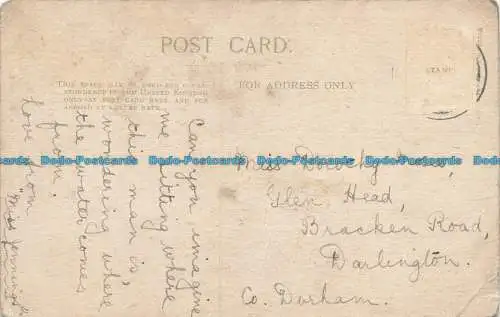 POST CARD.
THIS SPACE MAY BE USED FOR CORRE-
SPONDENCE IN THE UNITED KINGDOM
ONLY AT POST CARD RATE, AND FOR
ABROAD AT LETTER RATE.
FOR ADDRESS ONLY
STAMP
Can you imagine
me sitting where
this man is
wondering where
the water comes
from.
Love from
"Miss
Miss Dorothy
Glen Head,
Bracken Road,
Darlington.
Co. Durham.
Dodo-Postcards Dodo-Postcards Dodo-Postcards Dodo-Postcards Dodo-Postcards Dodo-Postcards